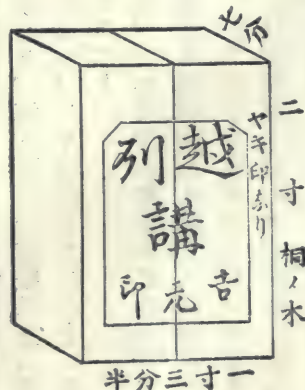 七分
二寸 桐ノ木
ヤキ印あり
越列
講
吉元印
一寸三分半